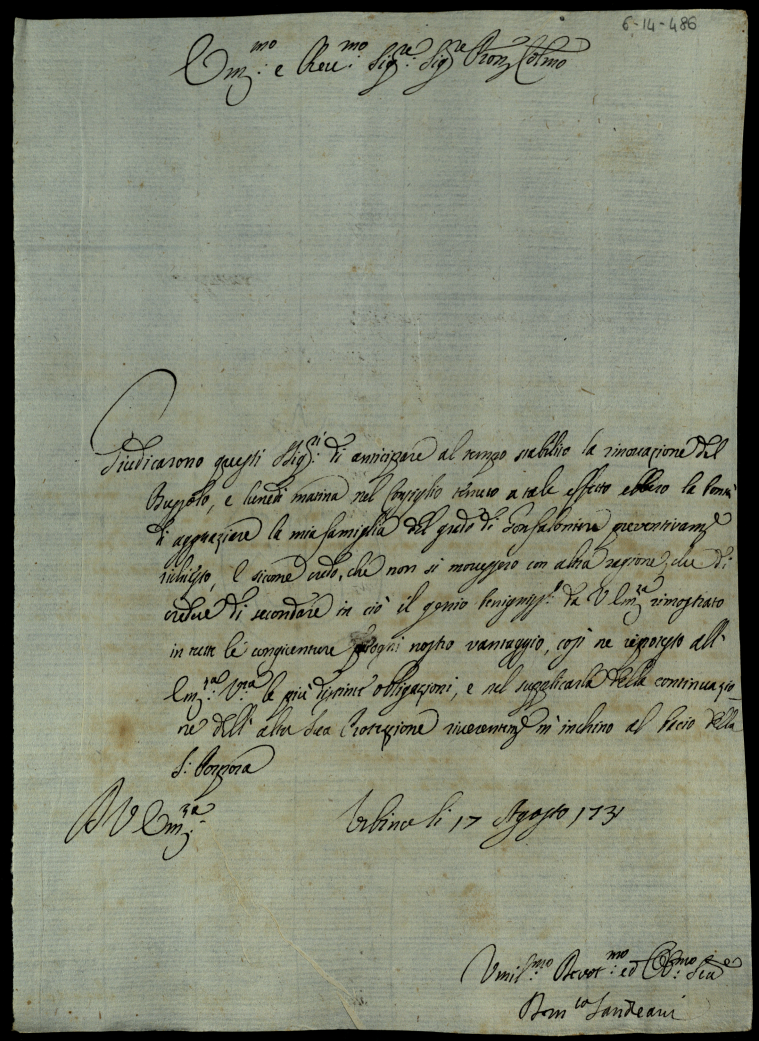 6-14-486
Em:mo e Rev:mo Sig:re Sig:re Pron Colmo
Giudicarono questi Sig:ri di anticipare al tempo stabilito la rinovazione del
Bussolo, e lunedi matina nel Consiglio tenuto a tale effetto ebbero la bontà
di aggraziare la mia famiglia del grado di Gonfaloniere preventivamte
richiesto, E sicome credo, che non si movessero con altra ragione, che di
credere di secondare in ciò il genio benigniss:o da V Em:za rimostrato
in tutte le congiunture per ogni nostro vantaggio, così ne riporto all'
Em:za Vra le più distinte obligazioni, e nel supplicarla della continuazio-
ne dell' alta Sua Protezzione riverentemte m' inchino al bacio della
S: Porpora
D V Em:za
Urbino li 17 Agosto 1731
Umil:mo Devot:mo ed Obl:mo Sere
Dom:co